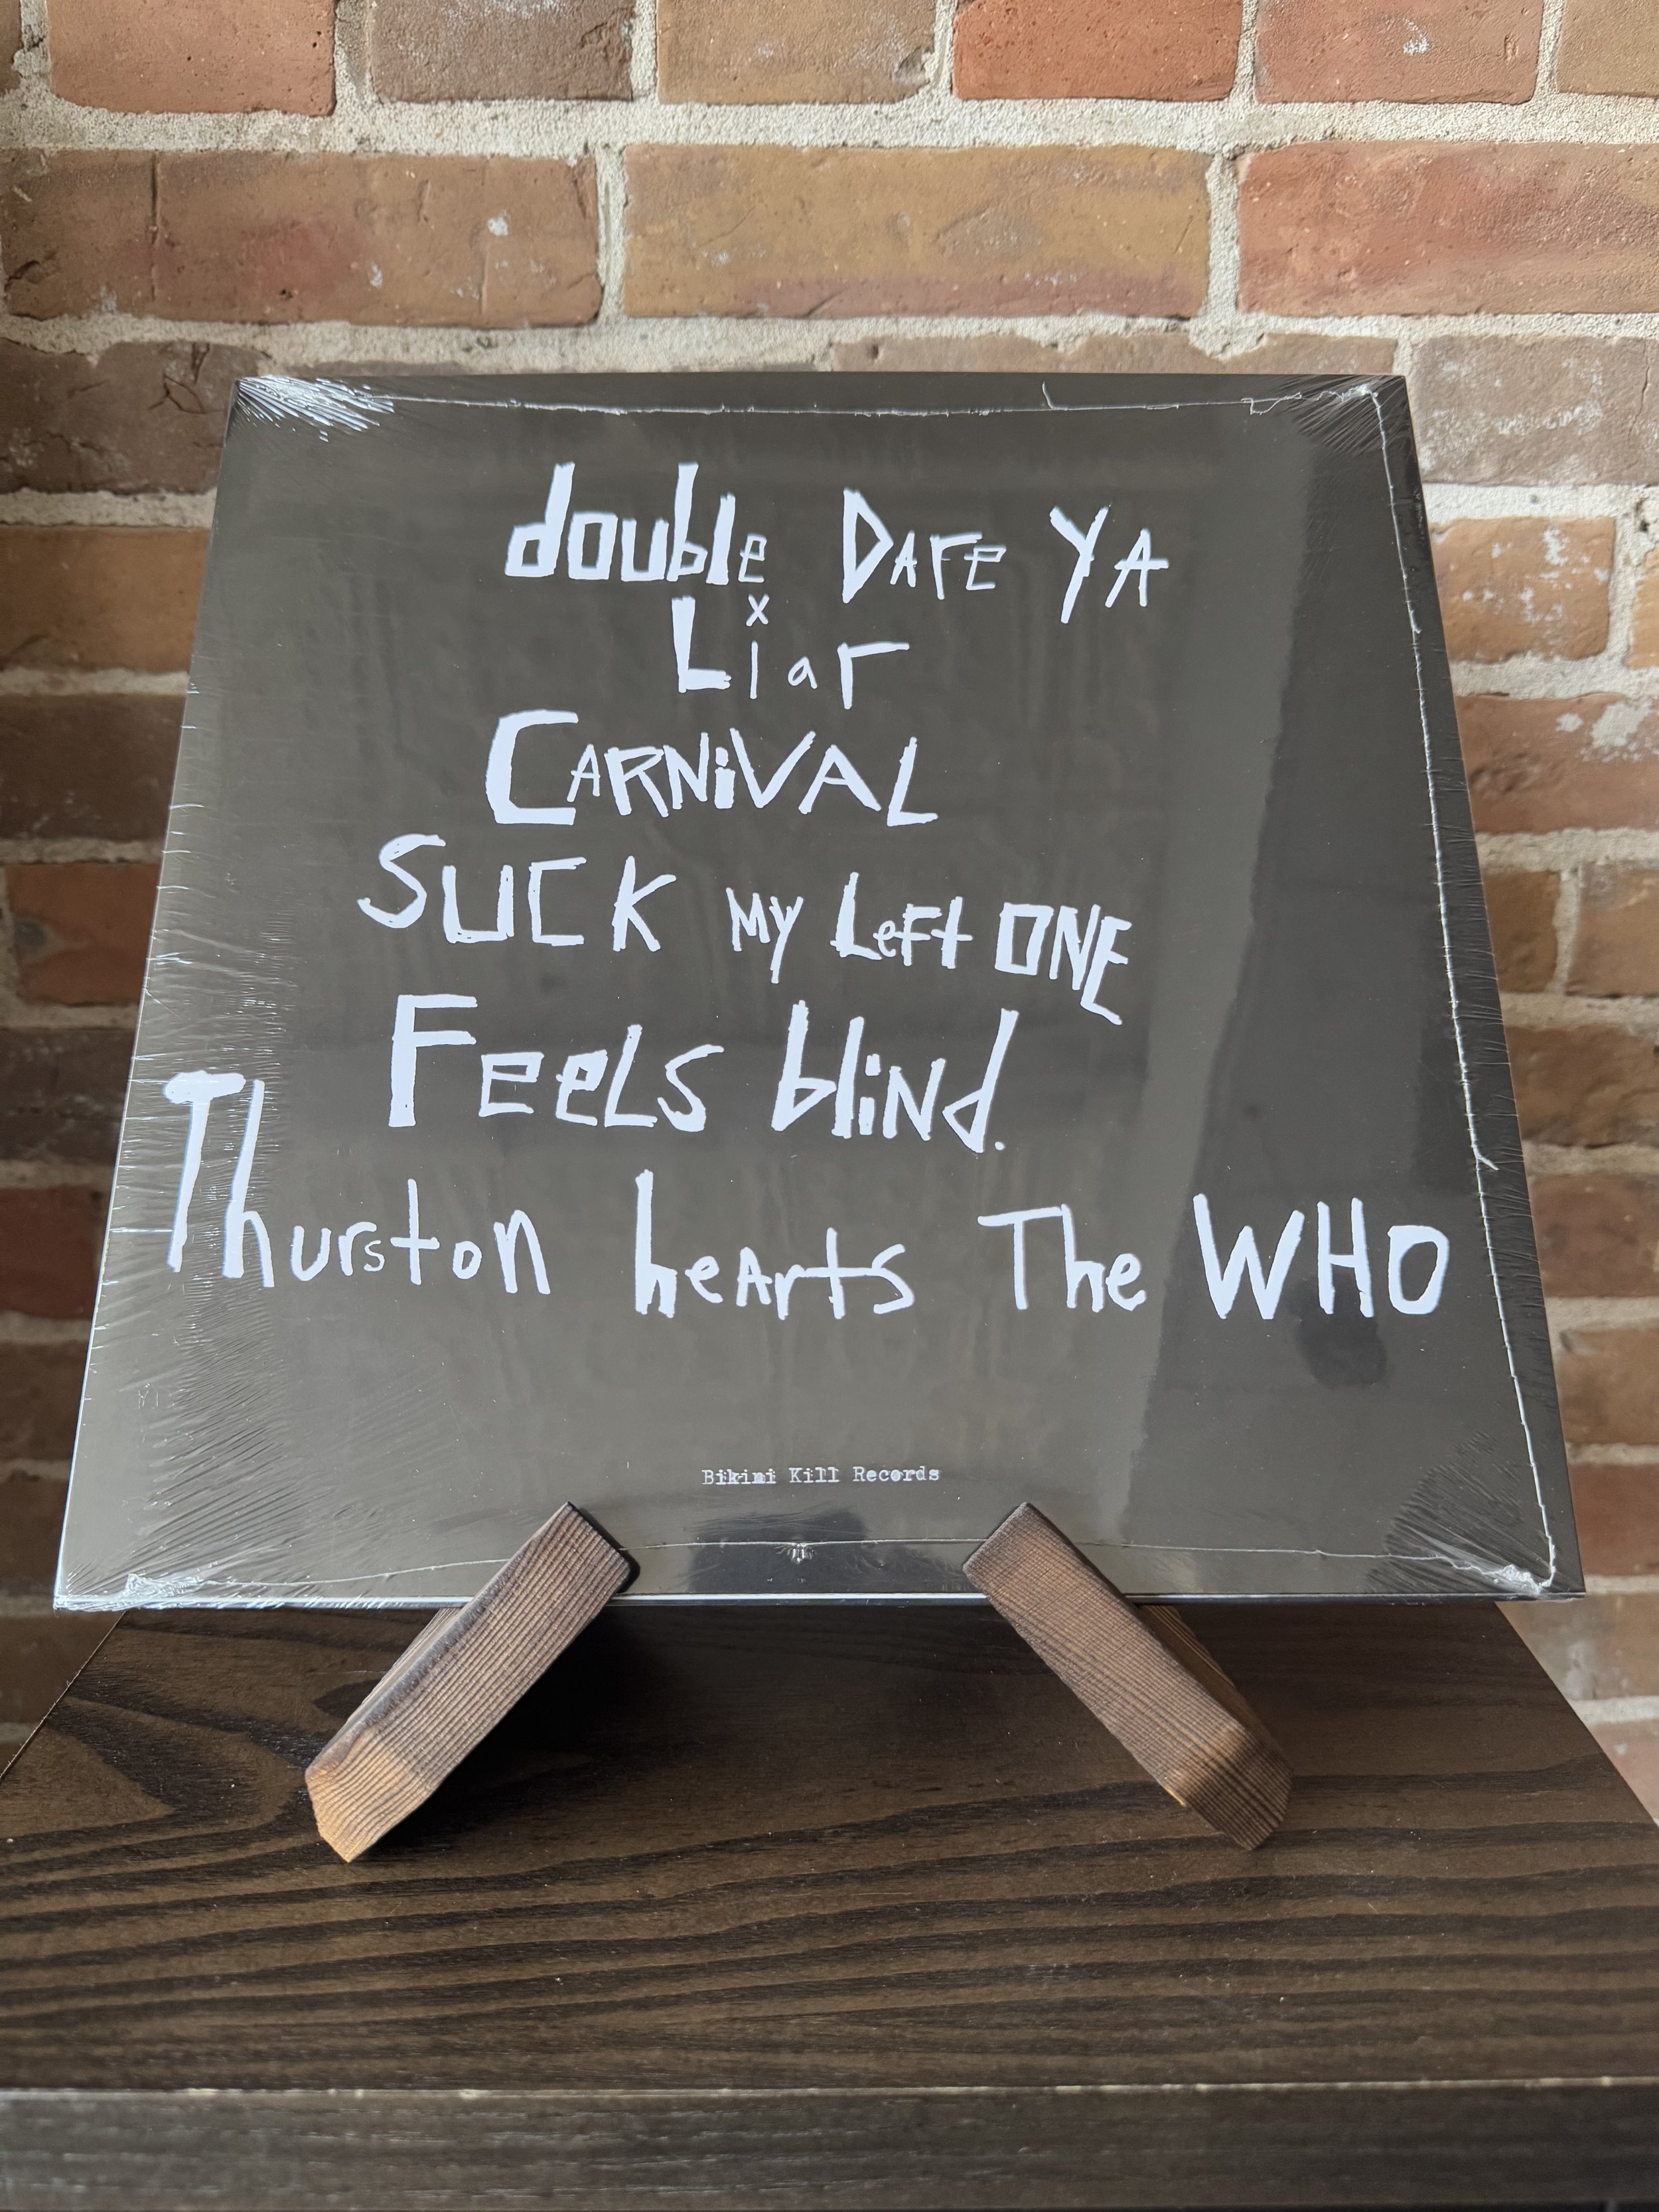 double DAre YA
Liar
CARNiVAL
SUCK MY LeFt ONE
FeeLS bliNd.
Thurston heArts The WHO
Bikini Kill Records